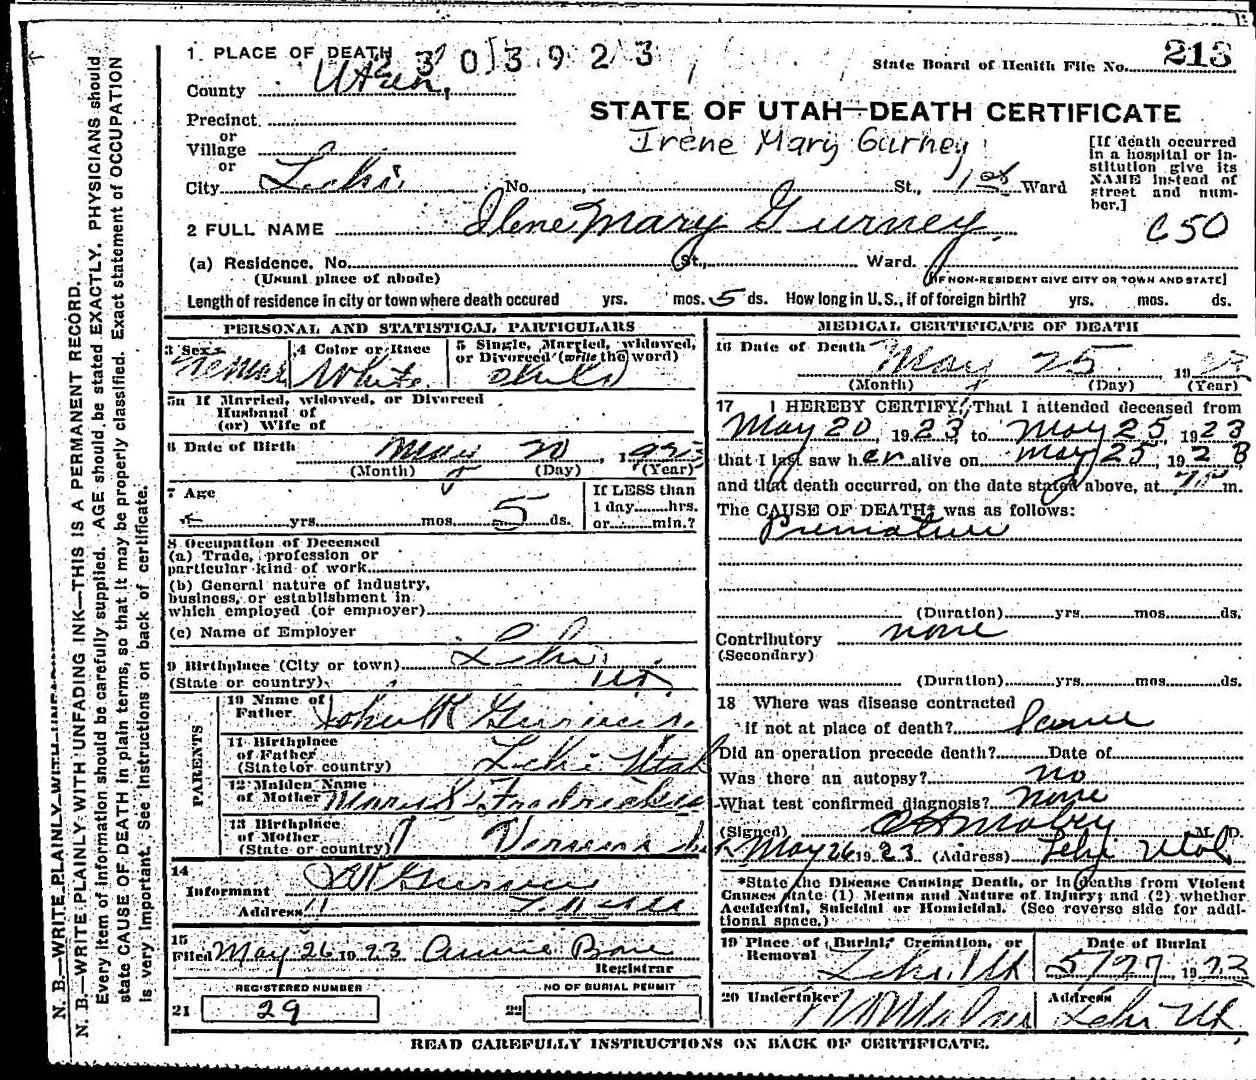 1 PLACE OF DEATH 3 0 3 9 2 3
State Board of Health File No. 213
County Utah
STATE OF UTAH—DEATH CERTIFICATE
Precinct
or
Village
or
Irene Mary Gurney
[If death occurred in a hospital or institution give its NAME instead of street and number.]
City Lehi No. St., 1st Ward
2 FULL NAME Ilene Mary Gurney
C50
(a) Residence. No. St., Ward.
(Usual place of abode) [IF NON-RESIDENT GIVE CITY OR TOWN AND STATE]
Length of residence in city or town where death occured yrs. mos. 5 ds. How long in U.S., if of foreign birth? yrs. mos. ds.
PERSONAL AND STATISTICAL PARTICULARS
3 Sex Female
4 Color or Race White
5 Single, Married, widowed, or Divorced (write the word) Child
5a If Married, widowed, or Divorced
Husband of
(or) Wife of
6 Date of Birth May 20, 1923
(Month) (Day) (Year)
7 Age
yrs. mos. 5 ds.
If LESS than
1 day hrs.
or min.?
8 Occupation of Deceased
(a) Trade, profession or
particular kind of work
(b) General nature of industry,
business, or establishment in
which employed (or employer)
(c) Name of Employer
9 Birthplace (City or town) Lehi
(State or country) Ut.
PARENTS
10 Name of Father John K Gurney
11 Birthplace of Father (State or country) Lehi Utah
12 Maiden Name of Mother
13 Birthplace of Mother (State or country)
14
Informant J K Gurney
Address
15
Filed May 26 1923 Annie Bone
Registrar
REGISTERED NUMBER
21 29
NO OF BURIAL PERMIT
22
MEDICAL CERTIFICATE OF DEATH
16 Date of Death May 25 1923
(Month) (Day) (Year)
17 I HEREBY CERTIFY, That I attended deceased from
May 20, 1923, to May 25, 1923
that I last saw her alive on May 25, 1923
and that death occurred, on the date stated above, at m.
The CAUSE OF DEATH* was as follows:
Premature
(Duration) yrs. mos. ds.
Contributory none
(Secondary)
(Duration) yrs. mos. ds.
18 Where was disease contracted
if not at place of death? Same
Did an operation precede death? Date of
Was there an autopsy? no
What test confirmed diagnosis? none
(Signed) M. D.
May 26 1923 (Address) Lehi Utah
*State the Disease Causing Death, or in deaths from Violent
Causes state (1) Means and Nature of Injury; and (2) whether
Accidental, Suicidal or Homicidal. (See reverse side for additional space.)
19 Place of Burial, Cremation, or Removal Lehi, Ut
Date of Burial 5/27 1923
20 Undertaker
Address Lehi Ut
READ CAREFULLY INSTRUCTIONS ON BACK OF CERTIFICATE.
N. B.—WRITE PLAINLY WITH UNFADING INK—THIS IS A PERMANENT RECORD.
Every item of information should be carefully supplied. AGE should be stated EXACTLY. PHYSICIANS should
state CAUSE OF DEATH in plain terms, so that it may be properly classified. Exact statement of OCCUPATION
is very important. See Instructions on back of certificate.